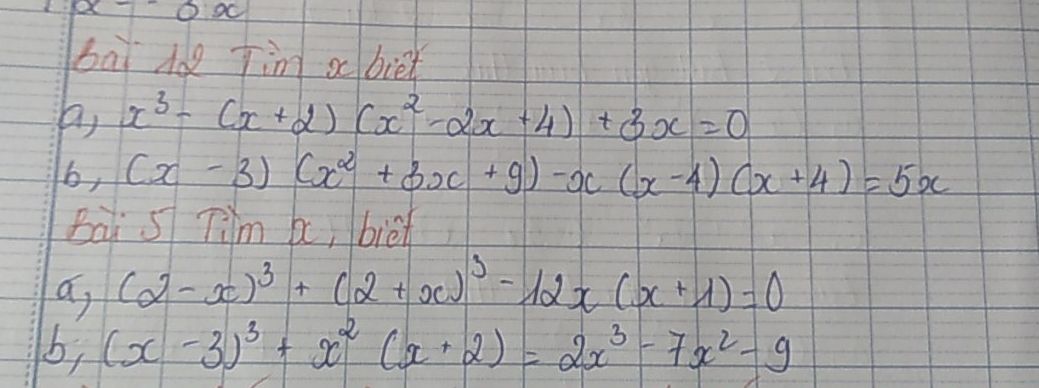 x - 3x
bài 12 Tìm x biết
a, x³ - (x + 2) (x² - 2x + 4) + 3x = 0
b, (x - 3) (x² + 3x + 9) - x (x - 4) (x + 4) = 5x
Bài 5 Tìm x, biết
a, (2 - x)³ + (2 + x)³ - 12x (x + 1) = 0
b, (x - 3)³ + x² (x + 2) = 2x³ - 7x² - 9